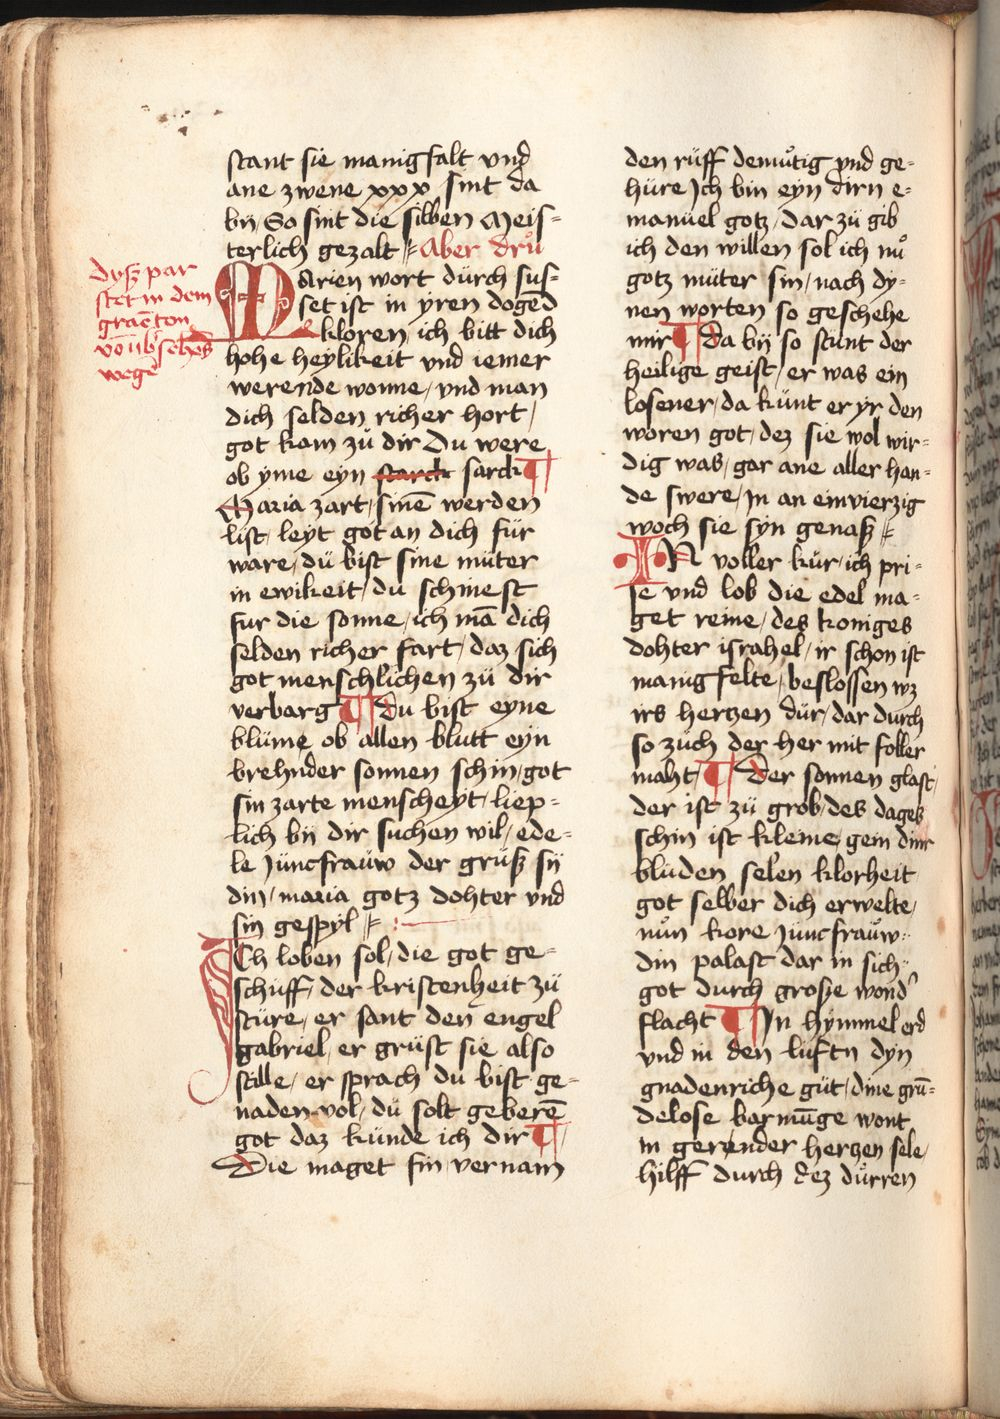 stant sie manigfalt vnd
ane zwene xxx sint da
bij So sint die silben Meis=
terlich gezalt Aber drü
Marien wort dürch süs=
set ist in yren doged
kloren, ich bitt dich
hohe heylikeit vnd iemer
werende wonne, vnd man
dich selden richer hort,
got kam zü dir Du were
ob yme eyn starck sarck ¶
Maria zart, sinē werden
list, leyt got an dich für
ware, dü bist sine müter
in ewikeit, dü schinest
fur die sonne, ich mā dich
selden richer fart, daz sich
got menschlichen zü dir
verbarg ¶ Du bist eyne
blüme ob allen blutt eyn
brehnder sonnen schin, got
sin zarte menscheyt, liep=
lich bij dir suchen wil, ede=
le Jüncfraüw der grüß sij
din, maria gotz dohter vnd
sin gespyl
ICh loben sol, die got ge=
schüff, der kristenheit zü
stüre, er sant den engel
gabriel, er grüst sie also
stille, er sprach du bist ge=
naden vol, dü solt geberē
got daz künde ich dir ¶
Die maget fin vernam
dyß par
stet in dem
wegē
den rüff demütig vnd ge=
hüre Jch bin eyn dirn e=
manüel gotz, dar zü gib
ich den willen sol ich nü
gotz müter sin, nach dy=
nen worten so geschehe
mir ¶ Da bij so stünt der
heilige geist, er was ein
losener, da künt er yr den
woren got, dez sie wol wir=
dig was, gar ane aller han=
de swere, Jn an einvierzig
woch sie syn genaß
IN voller kür, ich pri=
se vnd lob die edel ma=
get reine, des koniges
dohter israhel, ir schon ist
manigfelte, beslossen wz
irs hertzen dür, dar durch
so züch der her mit foller
maht, ¶ Der sonnen glast,
der ist zü grob, des dages
schin ist kleine, gein diner
blüden selen klorheit
got selber dich erwelte,
nün kore Jüncfraüw
din palast dar in sich
got durch groſſe
flacht ¶ Jn hymmel erd
vnd in den lüftn dyn
gnadenriche güt, dine grū=
delose barmūge wont
in gerender hertzen sele,
hilff durch dez dürren